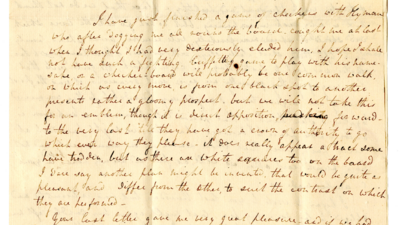 I have just finished a game of checkers with Hyman
who after dogging me all around the board, caught me at last
when I thought I had very dexterously eluded him, I hope I shale
not have such a fighting, game to play with his name-
sake, or a checker board will probably be our common walk,
on which we every move is from one black spot to another
presents rather a gloomy prospect, but we will not take this
for our emblem, though I direct opposition, forward
to the very last till they have got a crown & authority to go
what ever way they please. It does really appear as though some
hidden, but as there are white squares too on the board
I dare say another plan might be invented that would be quite as
pleasant, and differ from the other, to suit the contrast on which
they are performed —
Your last letter gave me very great pleasure and